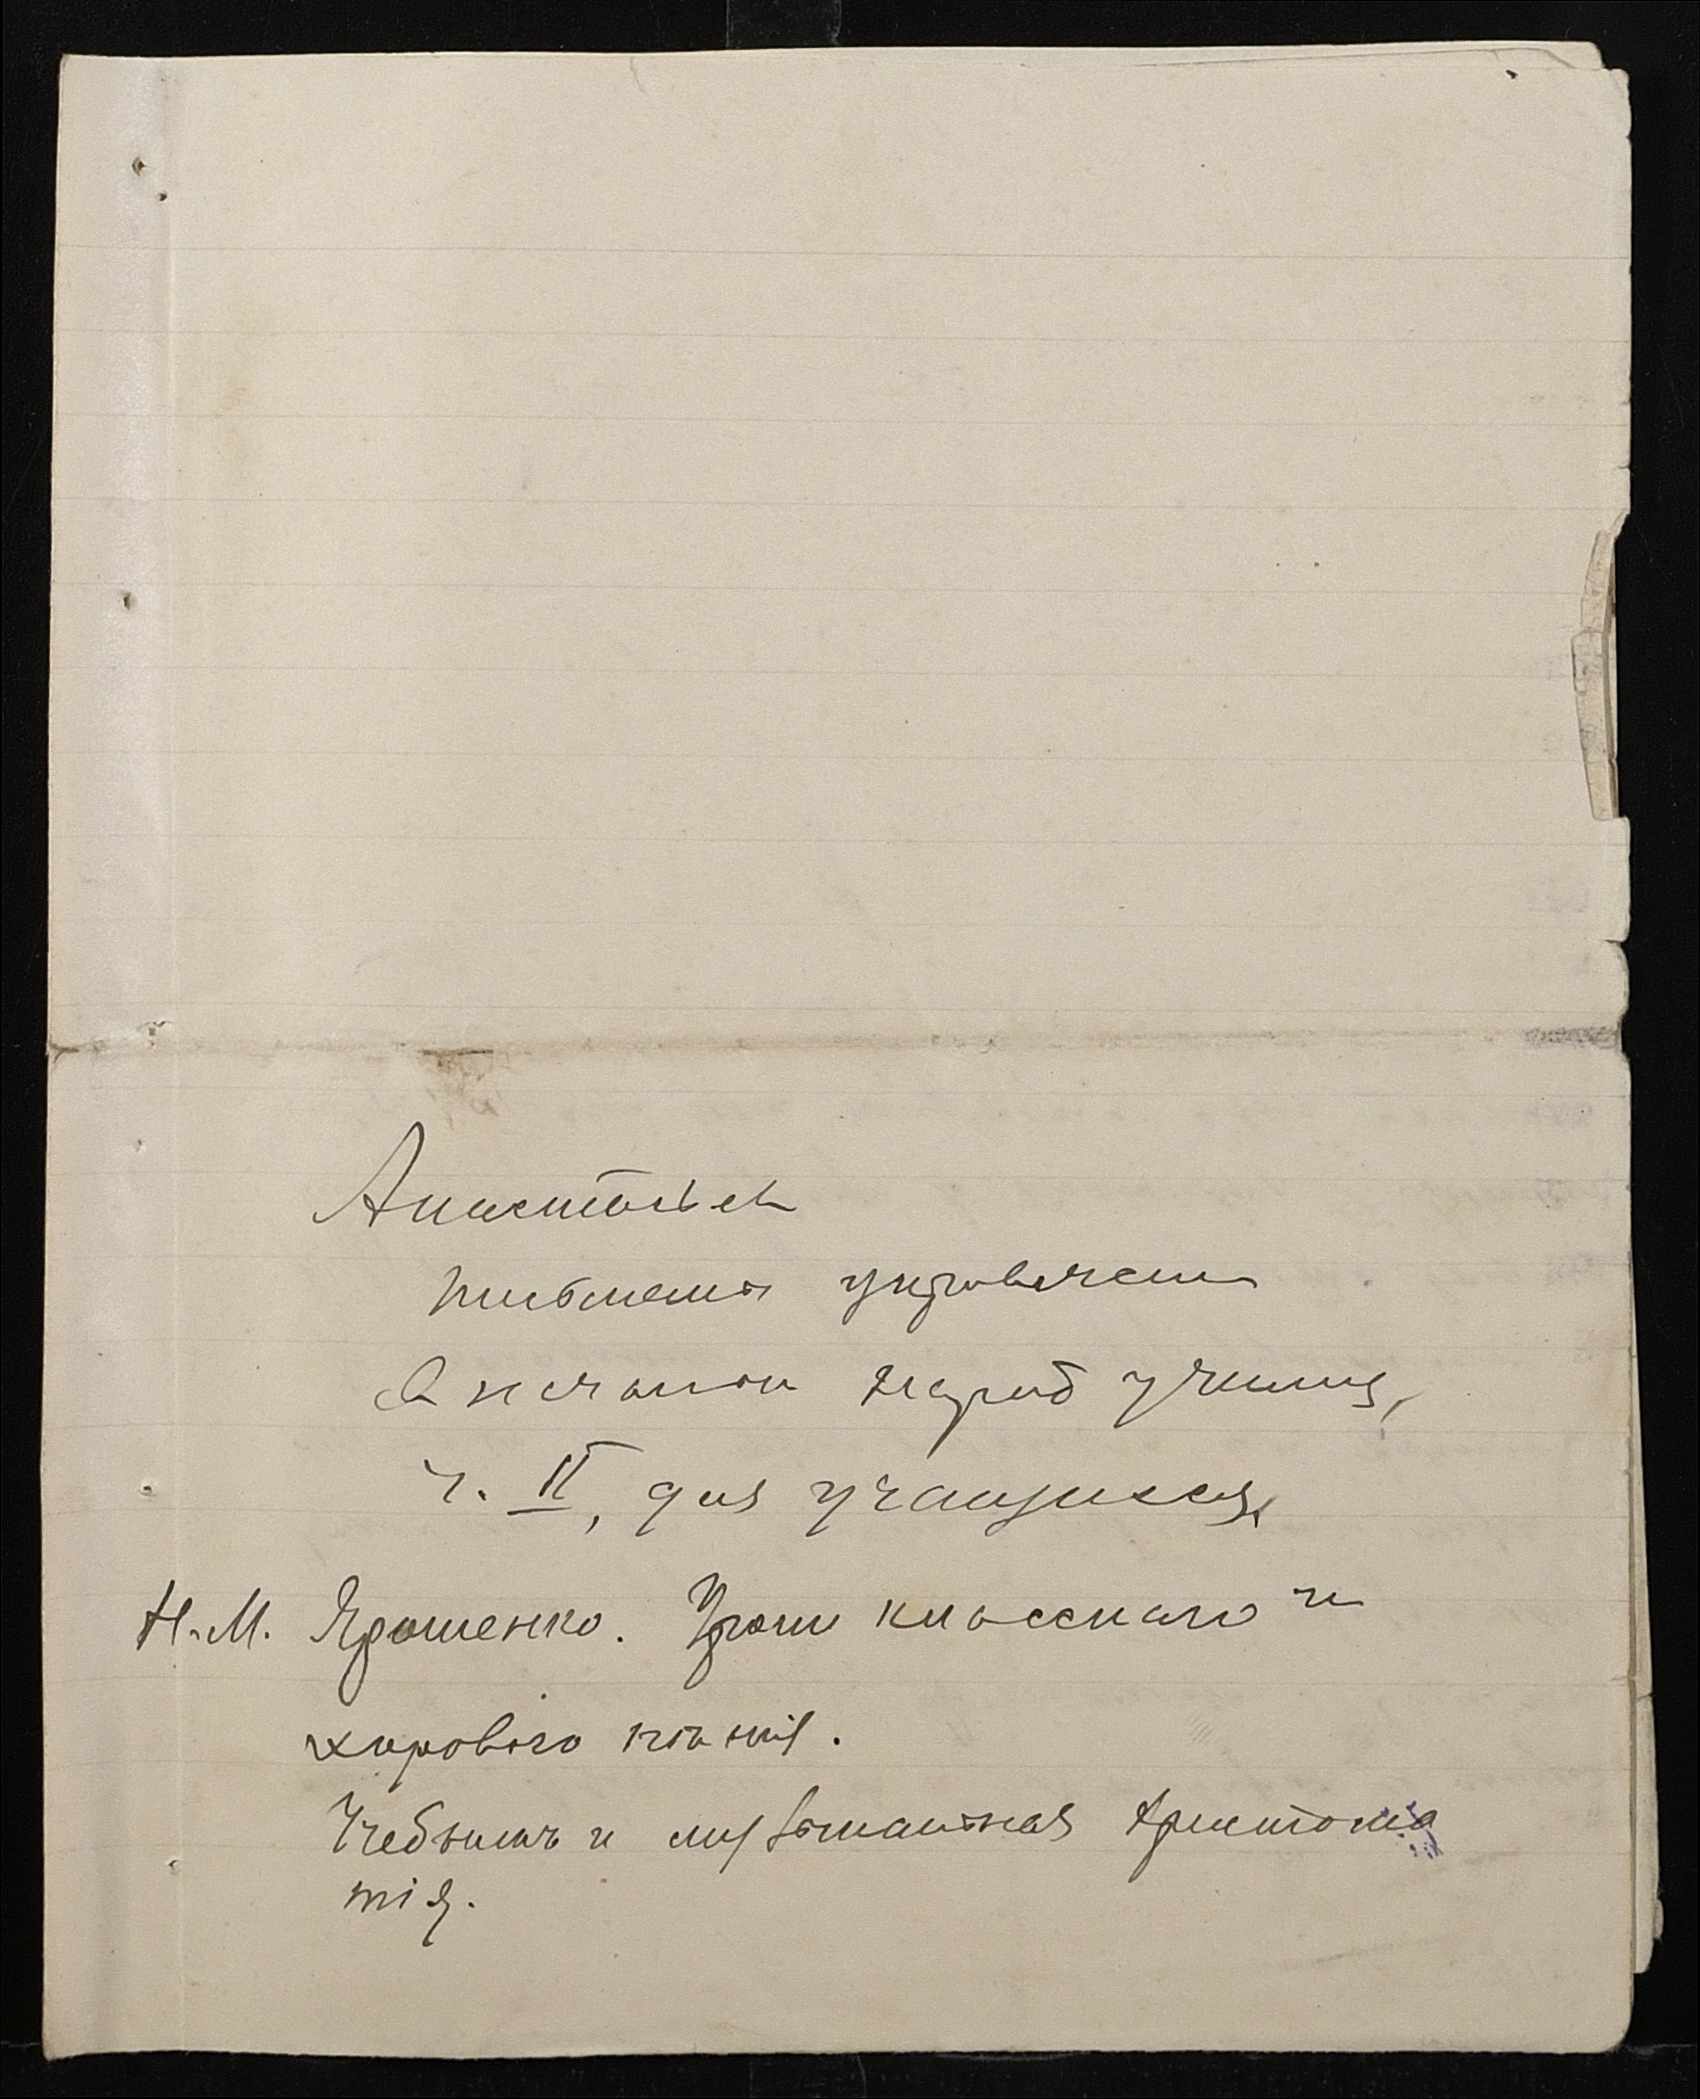 Анастасіев
письменн упражнени
в начальн народ училищ,
ч. II, для учащихся,
Н. М. Ярошенко. Уроки класснаго и
хорового пѣнія.
Учебникъ и музыкальная христома
тія.